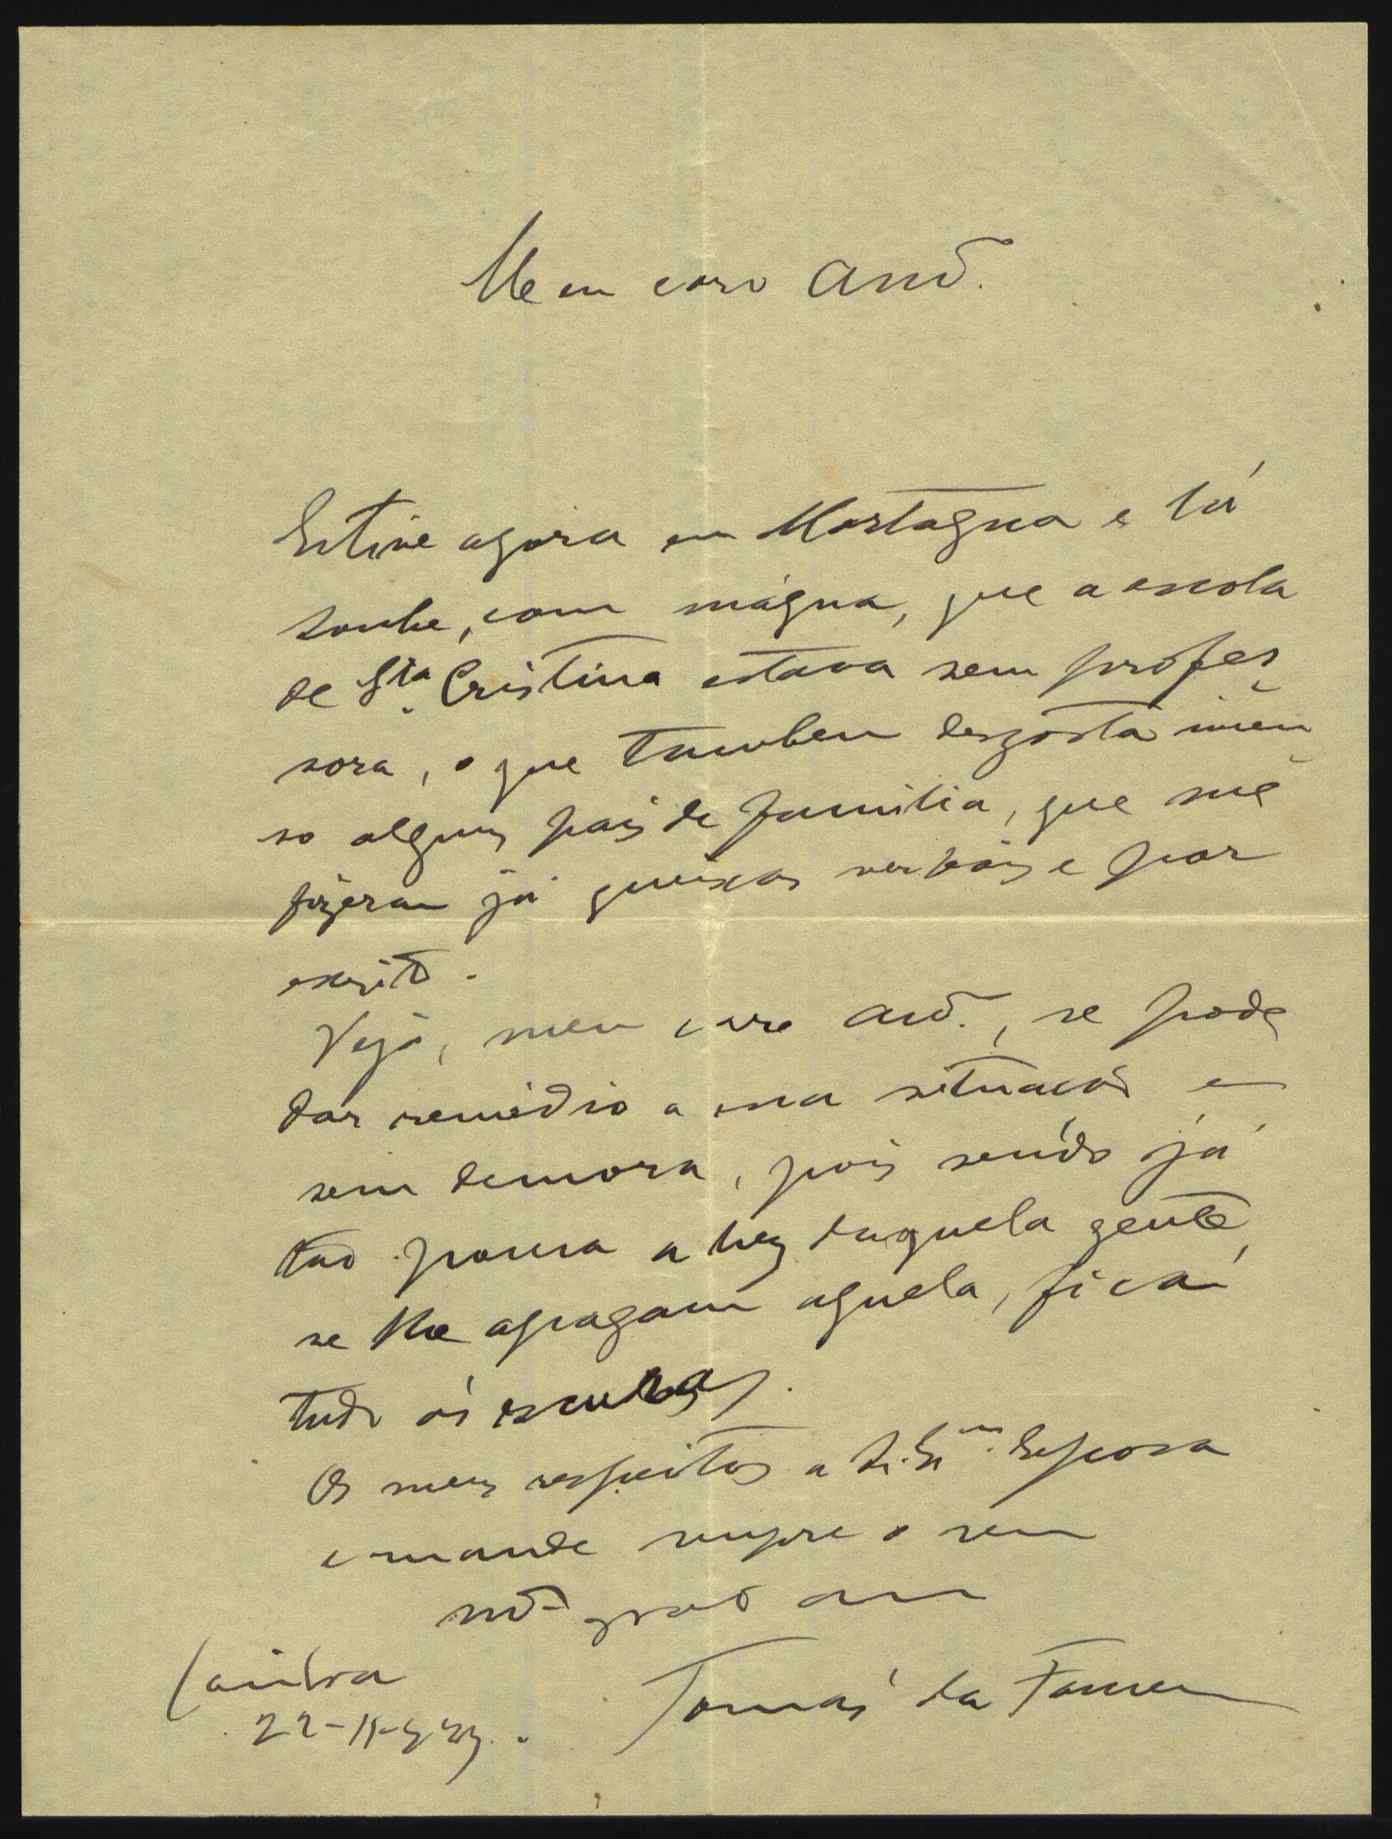 Meu caro Amº.
Estive agora em Mortagua e lá
soube, com mágua, que a escola
de Sta. Cristina estava sem profes
sora, o que tambem desgosta imen
so alguns pais de familia, que me
fizeram já queixas verbais e por
escrito.
Veja, meu caro Amº., se pode
dar remédio a essa situação e
sem demora, pois sendo já
tão pouca a luz daquela gente,
se lhe apagam aquela, fica
tudo ás escuras.
Os meus respeitos a S. Exma. Esposa
e mande sempre o seu
mtº grato am
Coimbra Tomás da Fonseca
22-11-